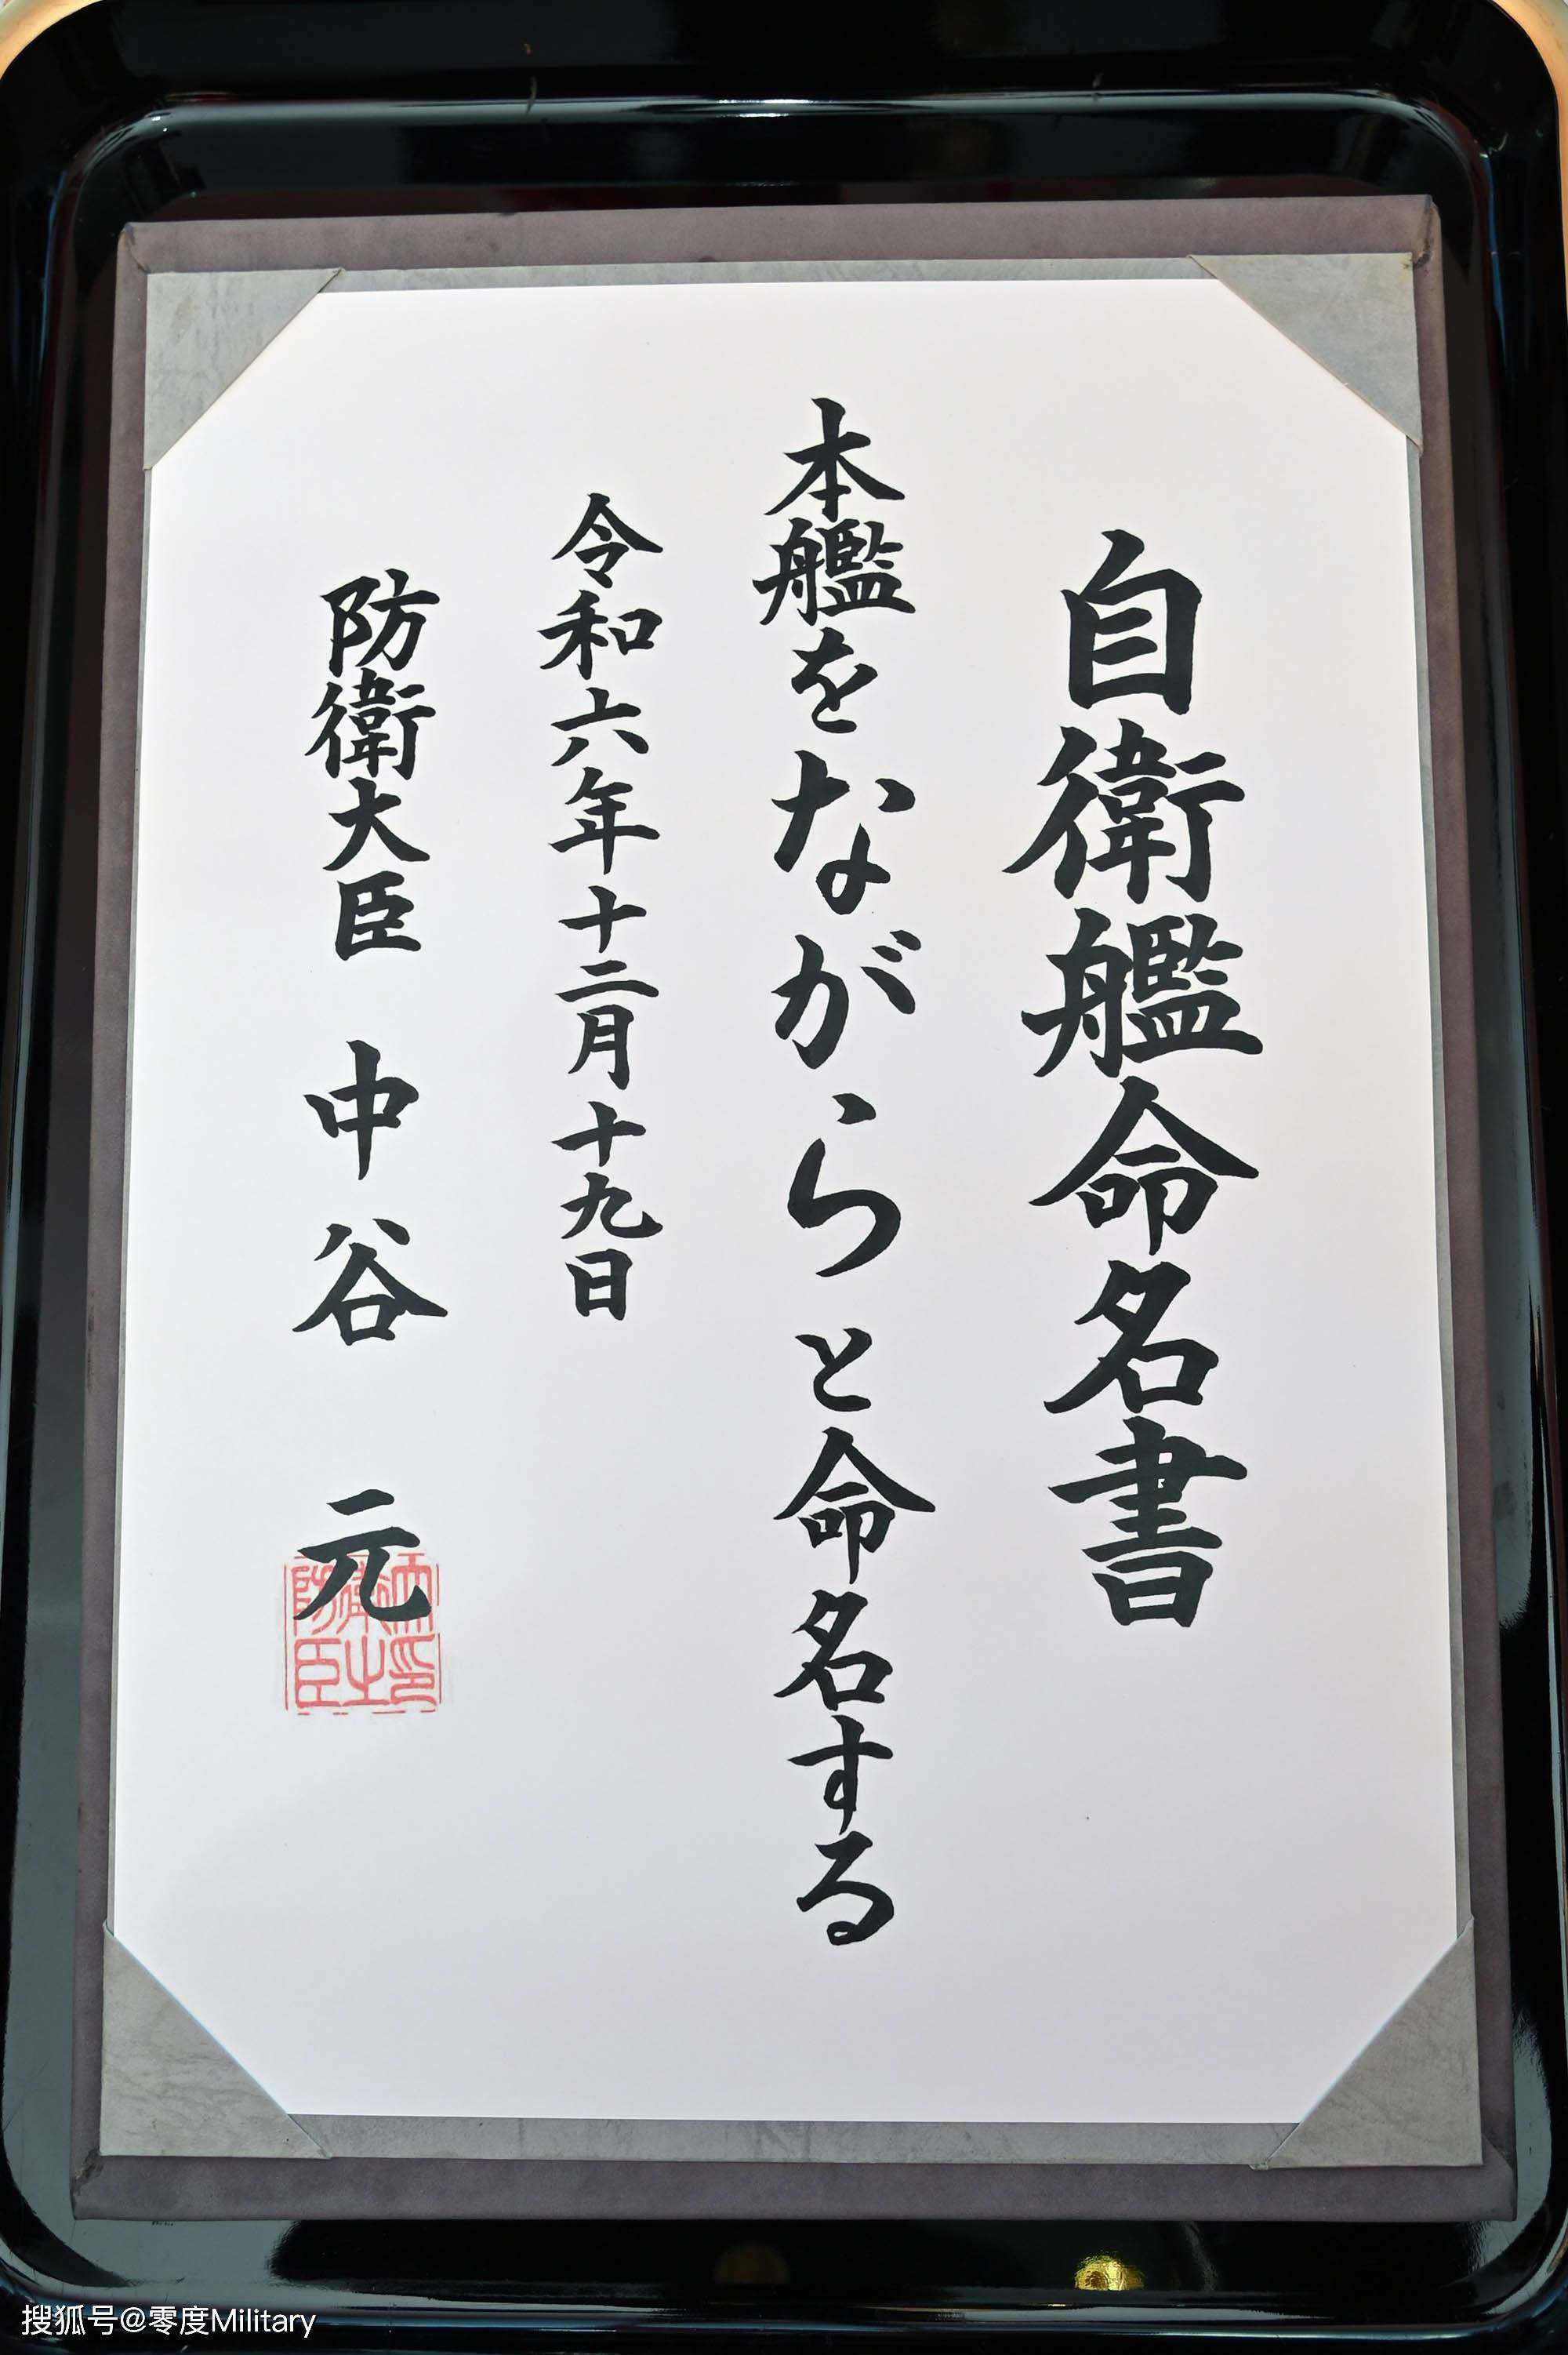 自衛艦命名書
本艦をながらと命名する
令和六年十二月十九日
防衛大臣 中谷 元
防衛大臣之印
搜狐号@零度Military